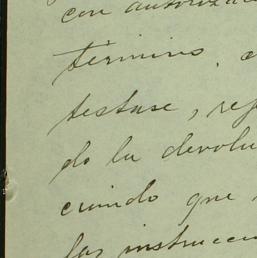 con autoriza
término, c
testase, re
do la devolu
ciendo que
las instrucci